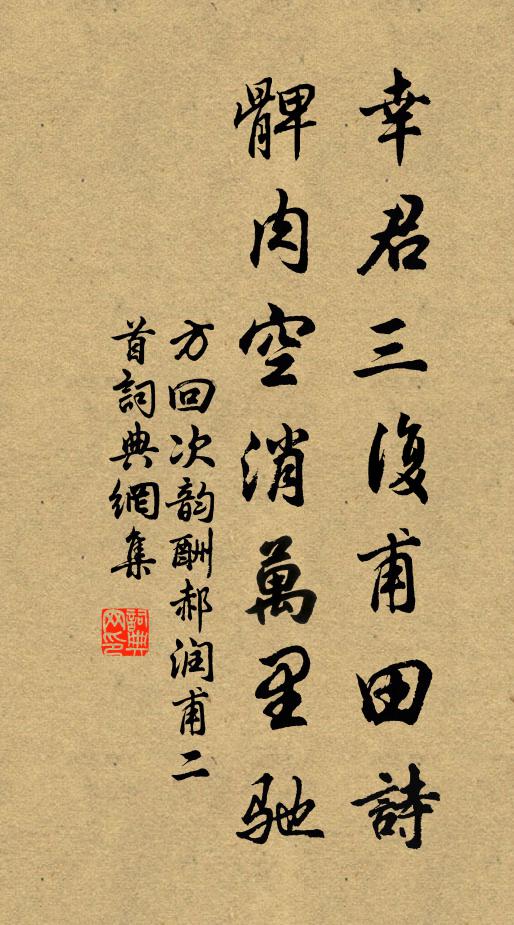 幸君三復甫田詩
髀肉空消萬里驰
方回次韵酬郝润甫二
首詞典網集
詞典
网印